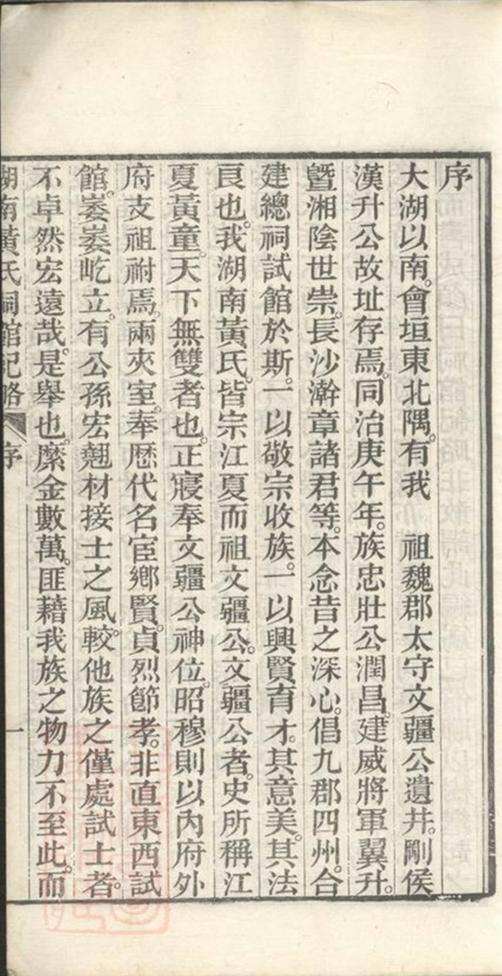 序
大湖以南。會垣東北隅。有我　祖魏郡太守文疆公遺井。剛侯
漢升公故址存焉。同治庚午年。族忠壯公潤昌。建威將軍翼升。
暨湘陰世崇。長沙澣章諸君等。本念昔之深心。倡九郡四州。合
建總祠試館於斯。一以敬宗收族。一以興賢育才。其意美。其法
良也。我湖南黃氏。皆宗江夏而祖文疆公。文疆公者。史所稱江
夏黃童。天下無雙者也。正寢奉文疆公神位。昭穆則以內府外
府支祖祔焉。兩夾室。奉歷代名宦鄉賢。貞烈節孝。非直東西試
館。嵏嵏屹立。有公孫宏翹材接士之風。較他族之僅處試士者。
不卓然宏遠哉。是舉也。縻金數萬。匪藉我族之物力不至此。而
湖南黃氏祠館記略　序　一